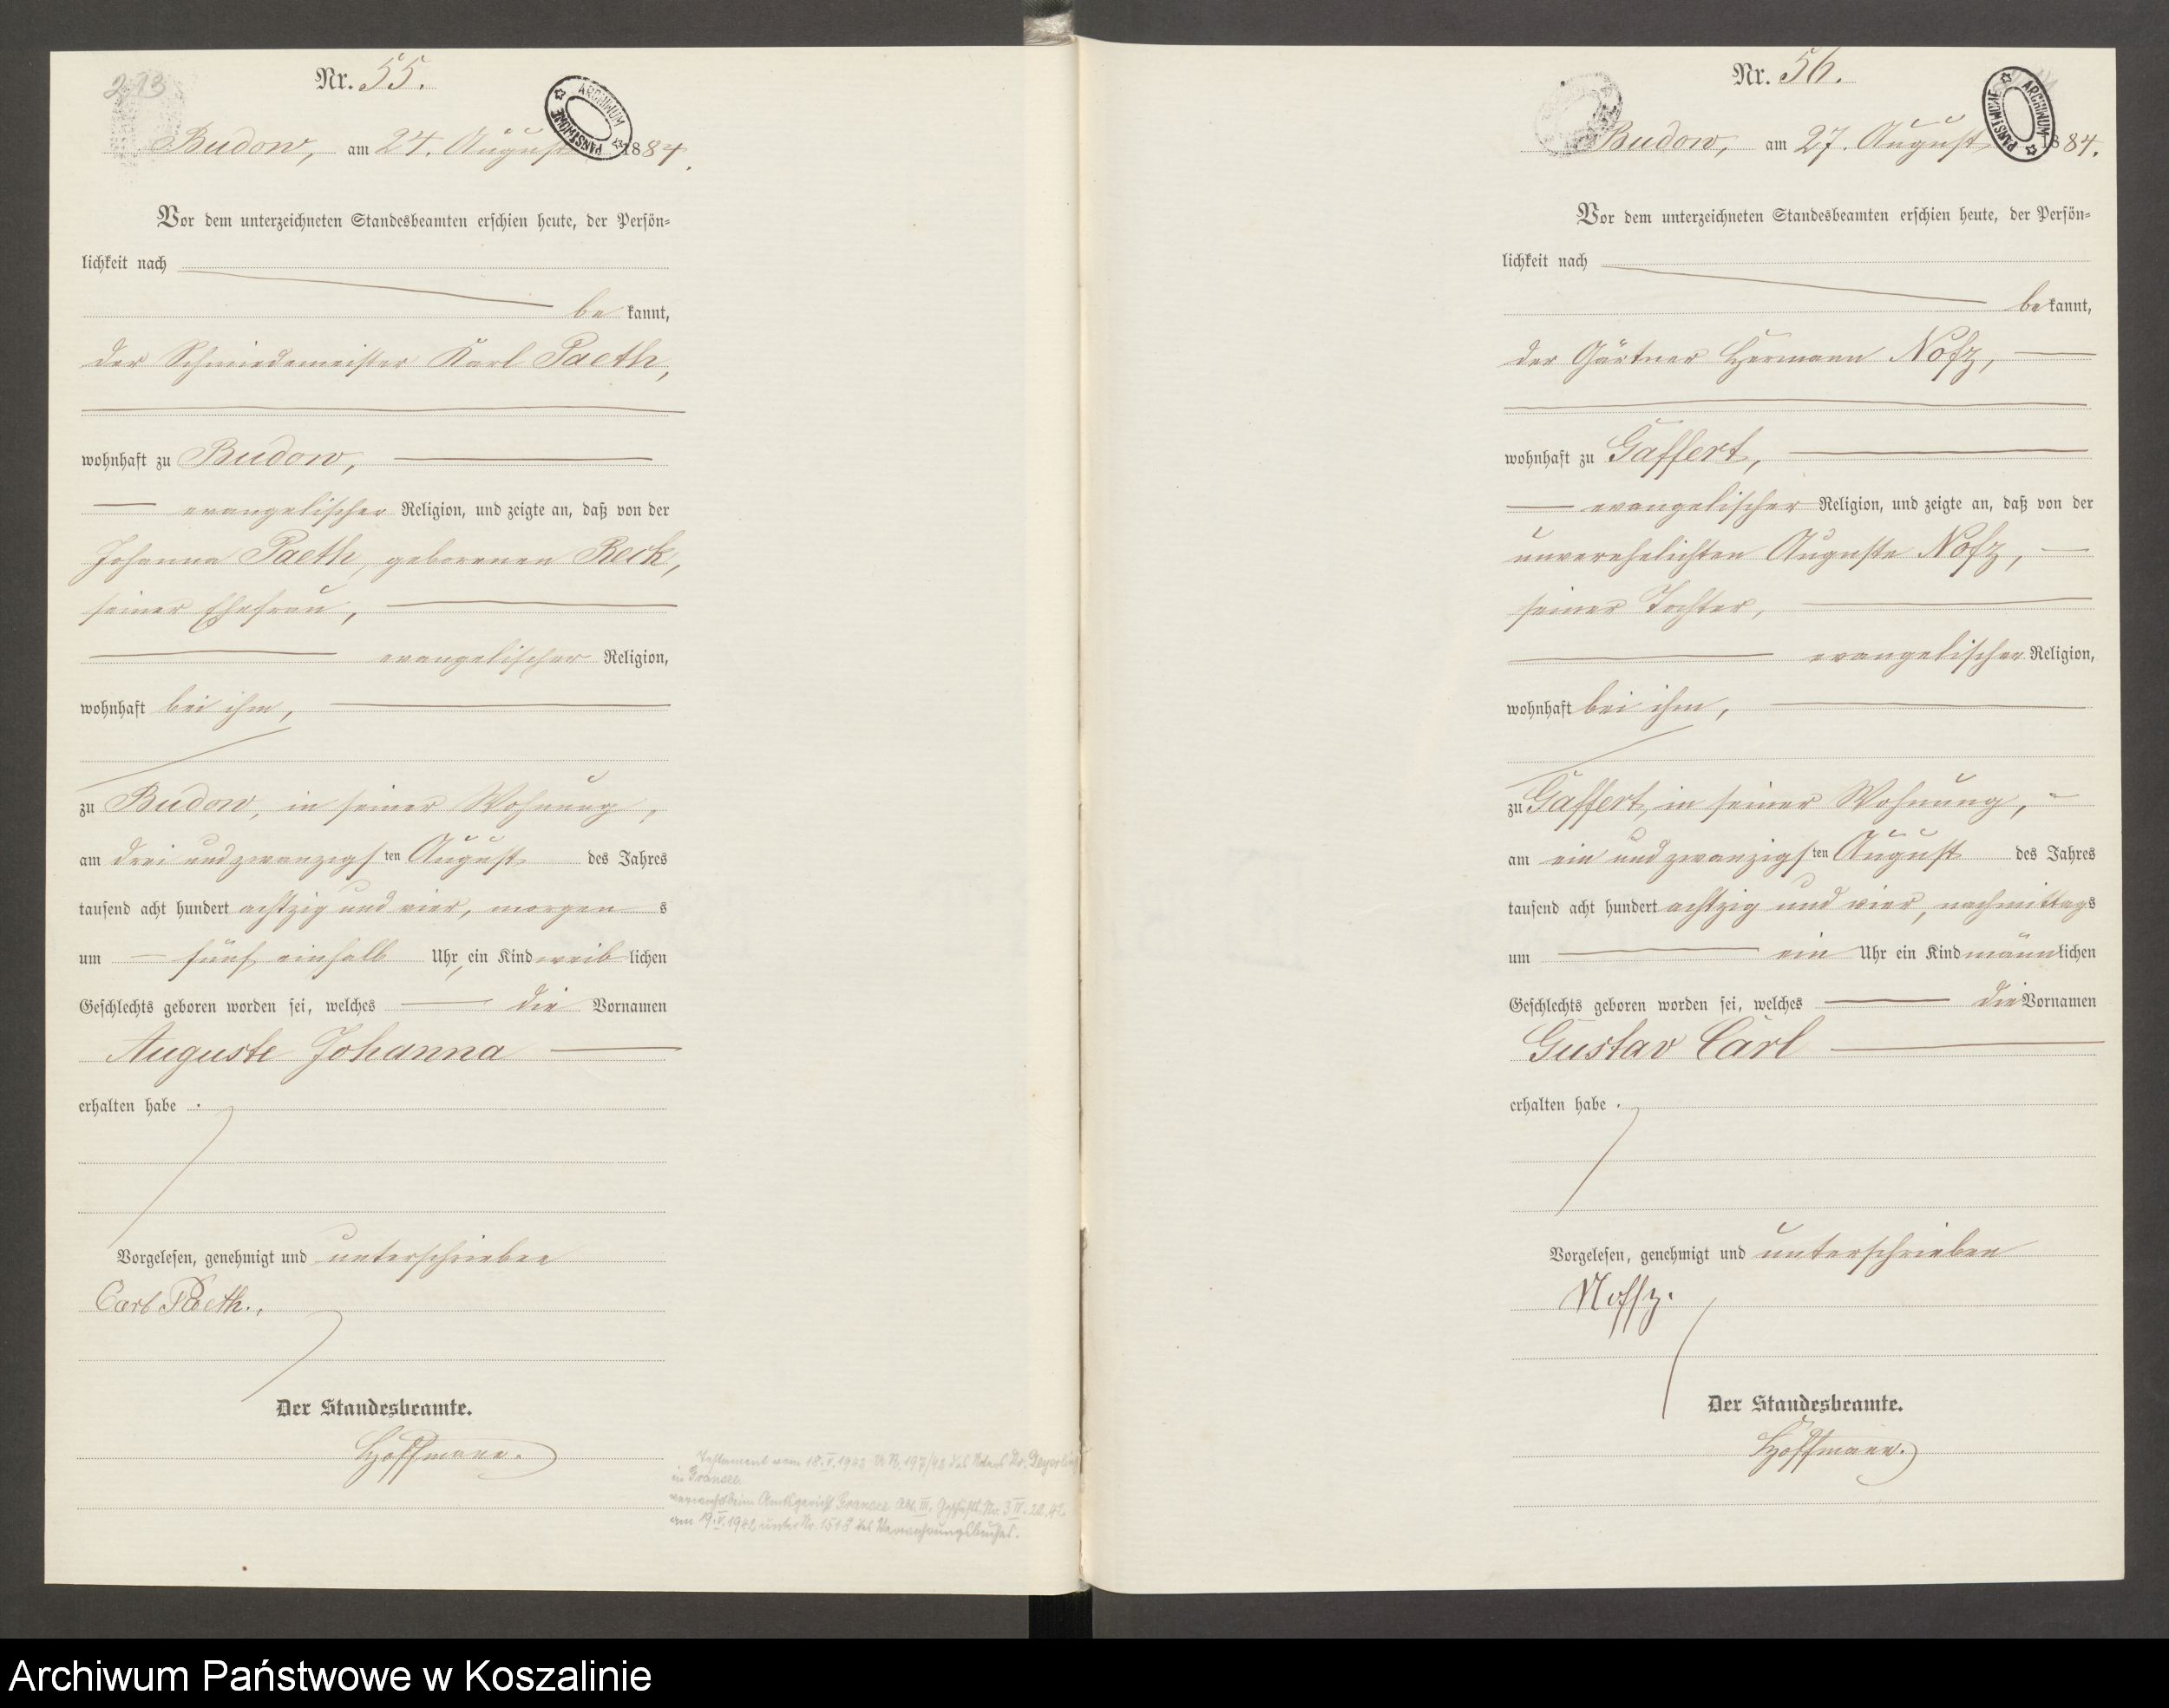 213
Nr. 55.
ARCHIWUM PAŃSTWOWE
Budow, am 24. August 1884.
Vor dem unterzeichneten Standesbeamten erschien heute, der Persön-
lichkeit nach
be kannt,
der Schmiedemeister Karl Paeth,
wohnhaft zu Budow,
evangelischer Religion, und zeigte an, daß von der
Johanna Paeth, geborenen Reck,
seiner Ehefrau,
evangelischer Religion,
wohnhaft bei ihm,
zu Budow, in seiner Wohnung,
am drei und zwanzigsten August des Jahres
tausend acht hundert achtzig und vier, morgens
um fünf einhalb Uhr, ein Kind weiblichen
Geschlechts geboren worden sei, welches die Vornamen
Auguste Johanna
erhalten habe.
Vorgelesen, genehmigt und unterschrieben
Carl Paeth.
Der Standesbeamte.
Hoffmann.
Testament vom 18.V.1942 UR Nr. 197/42 des Notars Dr.
in Gransee
verwahrt beim Amtsgericht Gransee Abt. III. Gesch. Nr. 3 IV. 20.42
am 19.V.1942 unter Nr. 1518 des Verwahrungsbuches.
Nr. 56.
ARCHIWUM PAŃSTWOWE
Budow, am 27. August 1884.
Vor dem unterzeichneten Standesbeamten erschien heute, der Persön-
lichkeit nach
be kannt,
der Gärtner Hermann Nofz,
wohnhaft zu Gaffert,
evangelischer Religion, und zeigte an, daß von der
unverehelichten Auguste Nofz,
seiner Tochter,
evangelischer Religion,
wohnhaft bei ihm,
zu Gaffert, in seiner Wohnung,
am ein und zwanzigsten August des Jahres
tausend acht hundert achtzig und vier, nachmittags
um ein Uhr ein Kind männlichen
Geschlechts geboren worden sei, welches die Vornamen
Gustav Carl
erhalten habe.
Vorgelesen, genehmigt und unterschrieben
Noffz.
Der Standesbeamte.
Hoffmann.
Archiwum Państwowe w Koszalinie